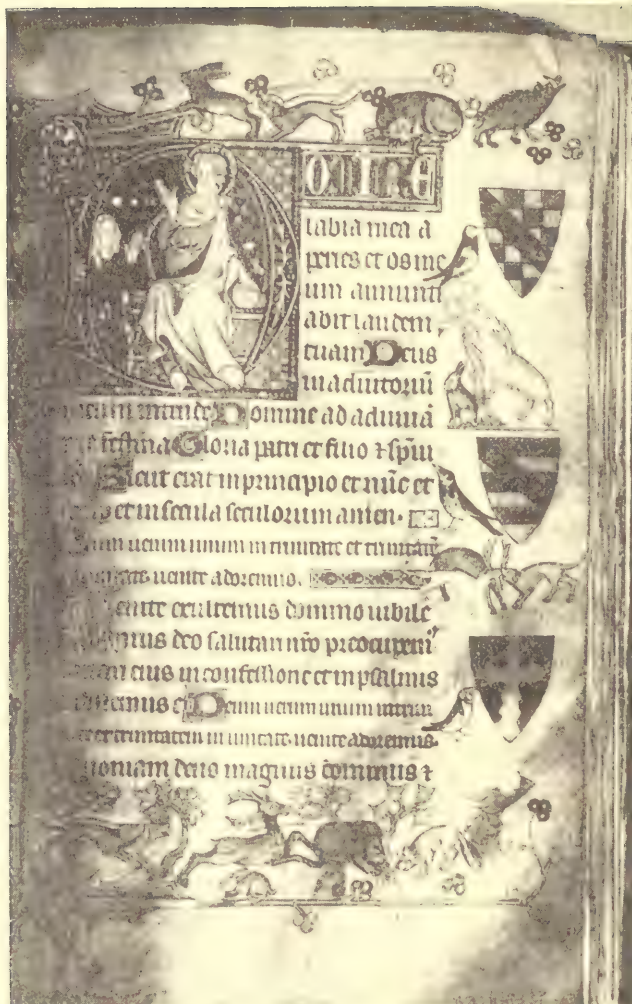 OMINE
labia mea a
peries et os me
um annunti
abit laudem
tuam Deus
in adiutoriū
meum intende Domine ad adiuuā
festina Gloria patri et filio ⁊ spūi
Sicut erat in principio et nūc et
et in secula seculorum amen.
uerum unum in trinitate et trinitatē
uenite adoremus.
uenite exultemus domino iubile
mus deo salutari nr̄o preocupem
eius in confessione et in psalmis
Deum uerum unum in trini
et trinitatem in unitate uenite adoremus.
quoniam deus magnus dominus ⁊